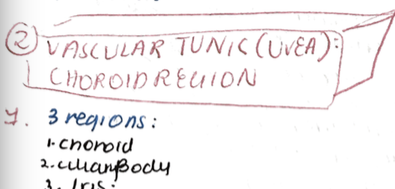 ② VASCULAR TUNIC (UVEA):
CHOROID REGION
1. 3 regions:
1. choroid
2. ciliary Body
3. Iris: